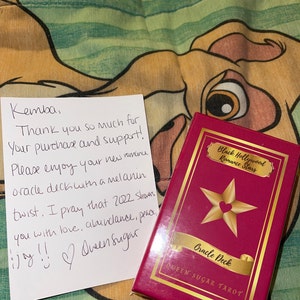 Kemba,
Thank you so much for
Your purchase and support!
Please enjoy your new romance
oracle deck with a melanin
twist. I pray that 2022 showers
you with love, abundance, peace
& joy!!
♡ QueenSugar
Black Hollywood
Romance Stars
Oracle Deck
QUEEN SUGAR TAROT